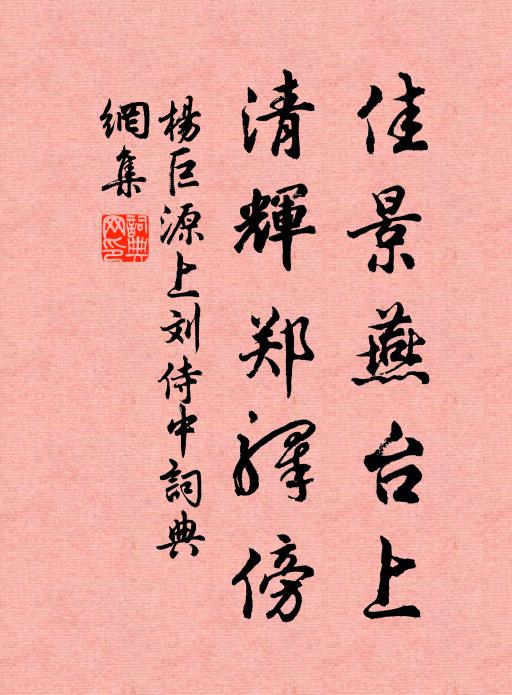 佳景燕台上
清輝郑驛傍
楊巨源上刘侍中詞典
網集
詞典网印